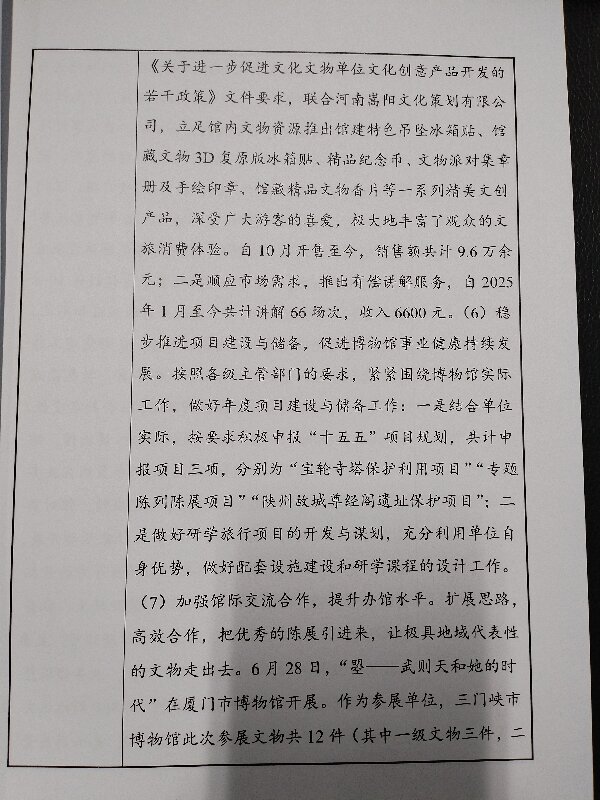 《关于进一步促进文化文物单位文化创意产品开发的
若干政策》文件要求，联合河南嵩阳文化策划有限公
司，立足馆内文物资源推出馆建特色吊坠冰箱贴、馆
藏文物 3D 复原版冰箱贴、精品纪念币、文物派对集章
册及手绘印章、馆藏精品文物香片等一系列精美文创
产品，深受广大游客的喜爱，极大地丰富了观众的文
旅消费体验。自 10 月开售至今，销售额共计 9.6 万余
元；二是顺应市场需求，推出有偿讲解服务，自 2025
年 1 月至今共计讲解 66 场次，收入 6600 元。（6）稳
步推进项目建设与储备，促进博物馆事业健康持续发
展。按照各级主管部门的要求，紧紧围绕博物馆实际
工作，做好年度项目建设与储备工作：一是结合单位
实际，按要求积极申报“十五五”项目规划，共计申
报项目三项，分别为“宝轮寺塔保护利用项目”“专题
陈列陈展项目”“陕州故城尊经阁遗址保护项目”；二
是做好研学旅行项目的开发与谋划，充分利用单位自
身优势，做好配套设施建设和研学课程的设计工作。
（7）加强馆际交流合作，提升办馆水平。扩展思路，
高效合作，把优秀的陈展引进来，让极具地域代表性
的文物走出去。6 月 28 日，“曌——武则天和她的时
代”在厦门市博物馆开展。作为参展单位，三门峡市
博物馆此次参展文物共 12 件（其中一级文物三件，二